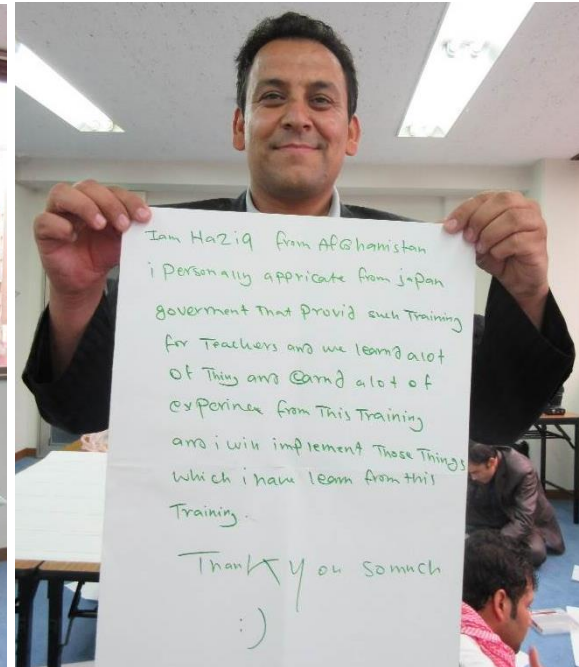 Iam Haziq from Afghanistan
i Personally appricate from japan
goverment That Provid such Training
for Teachers and we learnd alot
of Thing and earnd alot of
experinex from This Training
and i will implement Those Things
which i have learn from this
Training.
Thank you somuch
:)